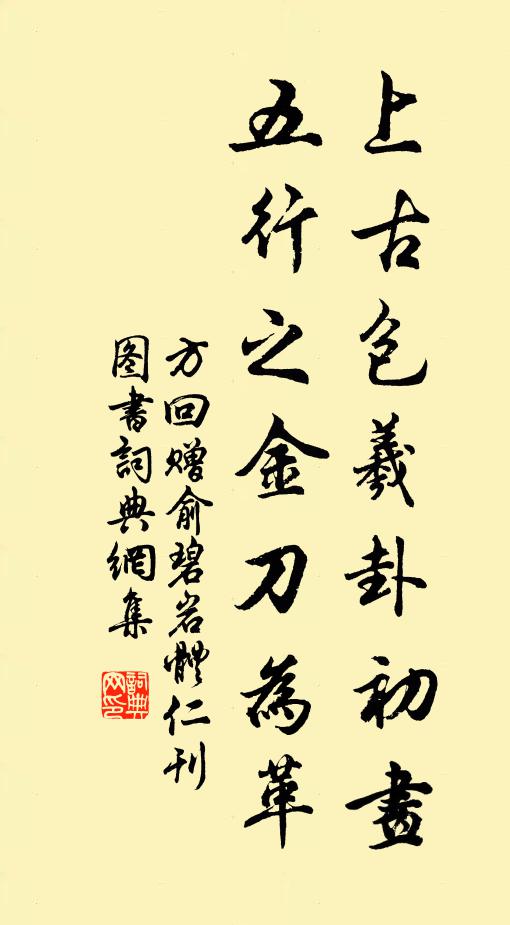 上古包羲卦初畫
五行之金刀為革
方回赠俞碧岩體仁刊
图書詞典網集
詞典網印